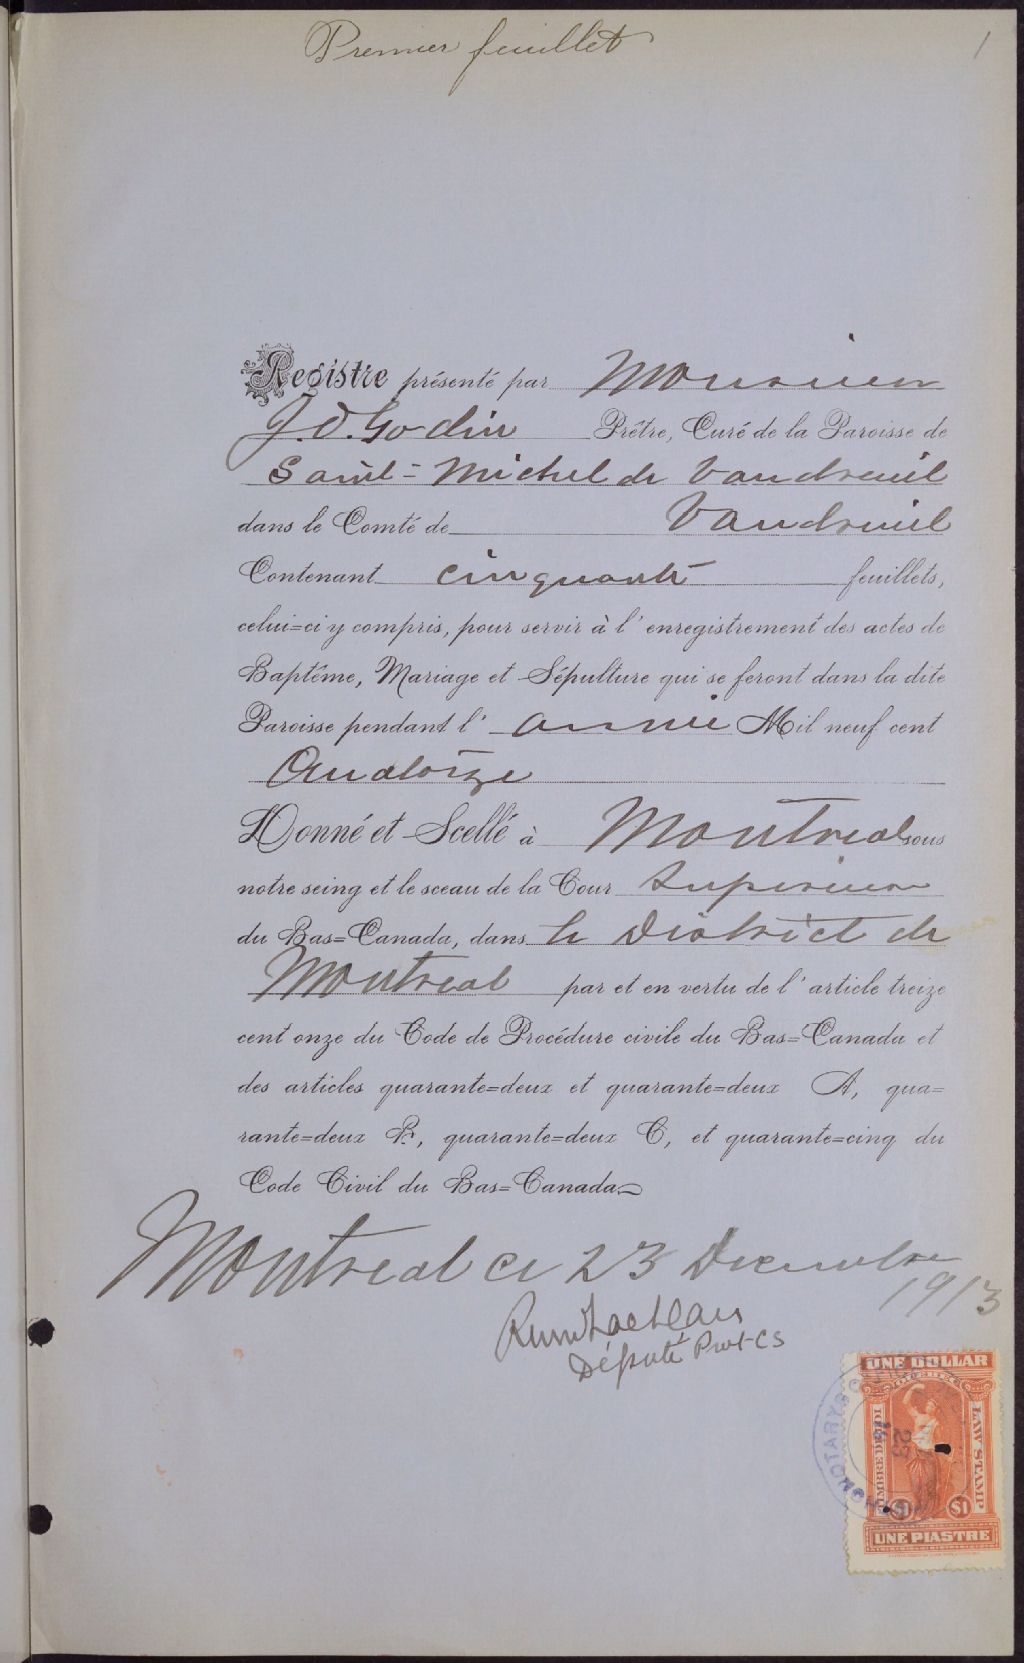 Premier feuillet
1
Registre présenté par Monsieur
J.O. Godin Prêtre, Curé de la Paroisse de
Saint-Michel de Vaudreuil
dans le Comté de Vaudreuil
Contenant cinquante feuillets,
celui=ci y compris, pour servir à l'enregistrement des actes de
Baptême, Mariage et Sépulture qui se feront dans la dite
Paroisse pendant l'année Mil neuf cent
Quatorze
Donné et Scellé à Montreal sous
notre seing et le sceau de la Cour Superieure
du Bas=Canada, dans le District de
Montreal par et en vertu de l'article treize
cent onze du Code de Procédure civile du Bas=Canada et
des articles quarante=deux et quarante=deux A, qua=
rante=deux B, quarante=deux C, et quarante=cinq du
Code Civil du Bas=Canada
Montreal ce 23 Decembre
1913
Député Prot CS
ONE DOLLAR
QUEBEC
TIMBRE DE LOI
LAW STAMP
23
$1 $1
UNE PIASTRE